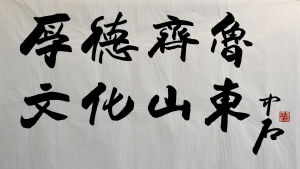 厚德齊魯
文化山東
中石